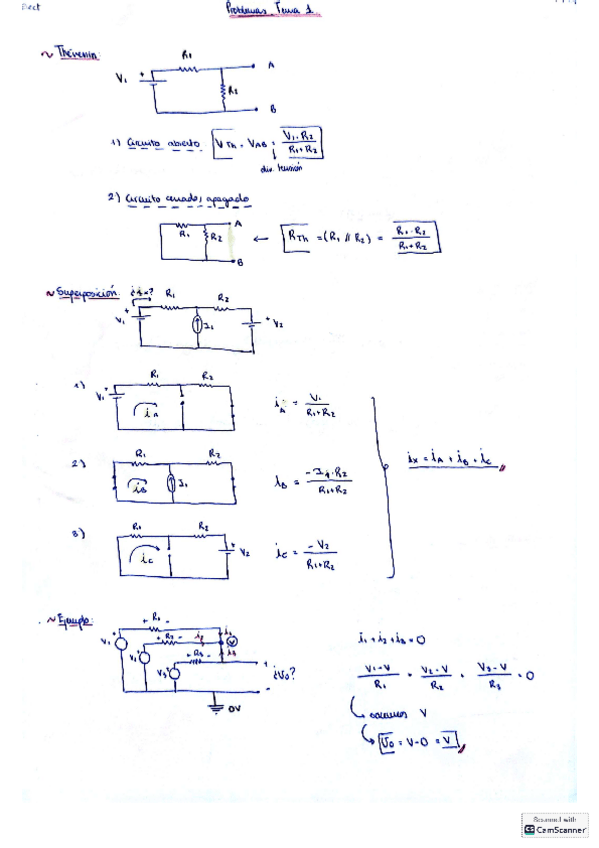 Problemas Tema 1.
~ Thévenin:
R1
A
V1 +
R2
B
1) Circuito abierto VTh = VAB = V1·R2 / R1+R2
div. tensión
2) Circuito cerrado, apagado
R1 R2 A
B
← RTh = (R1 // R2) = R1·R2 / R1+R2
~ Superposición: ¿ix? R1 R2
V1 + I1 + V2
1) R1 R2
V1 + iA
iA = V1 / R1+R2
2) R1 R2
iB I1
iB = -I1·R2 / R1+R2
ix = iA + iB + iC
3) R1 R2
iC + V2
iC = -V2 / R1+R2
~ Ejemplo: + R1 -
V1 + + R2 - i2 i1 V
V2 + + R3 - i3
V3 + + ¿V0?
-
0V
i1 + i2 + i3 = 0
V1-V / R1 + V2-V / R2 + V3-V / R3 = 0
sacamos V
V0 = V-0 = V
Scanned with
CS CamScanner